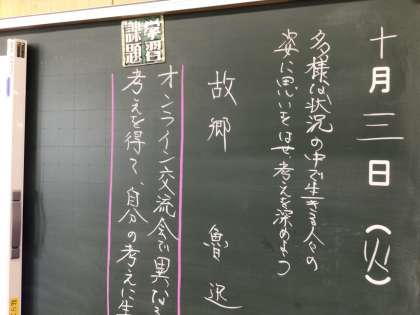 十月三日(火)
多様な状況の中で生きる人々の
姿に思いをはせ、考えを深めよう
故郷 魯迅
学習課題
オンライン交流会で異なる
考えを得て、自分の考えに生